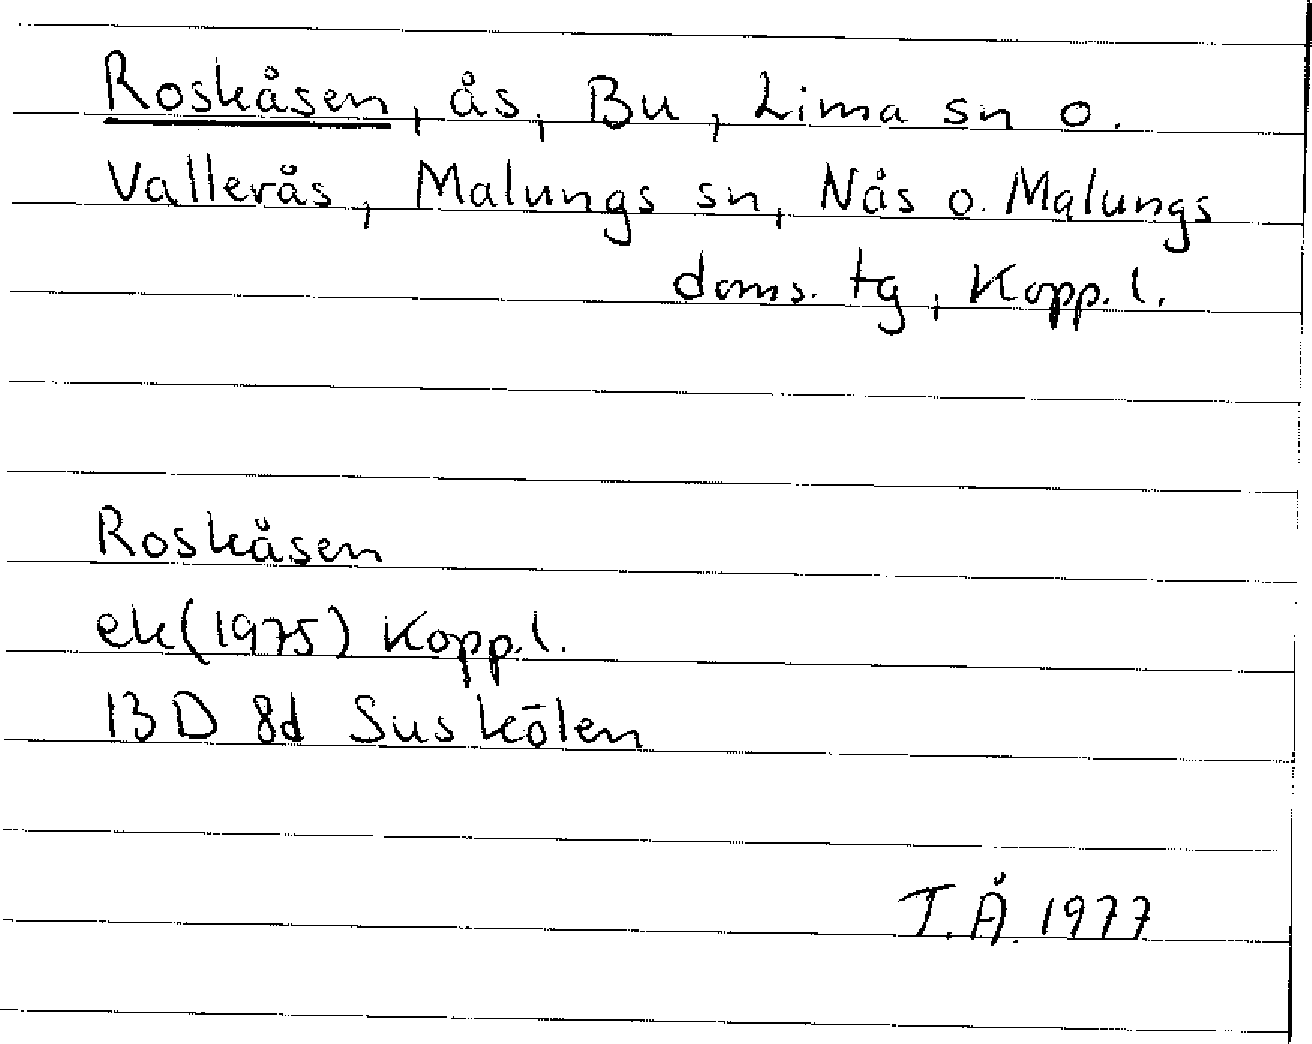 Roskåsen, ås, Bu, Lima sn o.
Vallerås, Malungs sn, Nås o. Malungs
doms. tg, Kopp. l.
Roskåsen
ek(1975) Kopp. l.
13D 8d Suskölen
T.Å. 1977